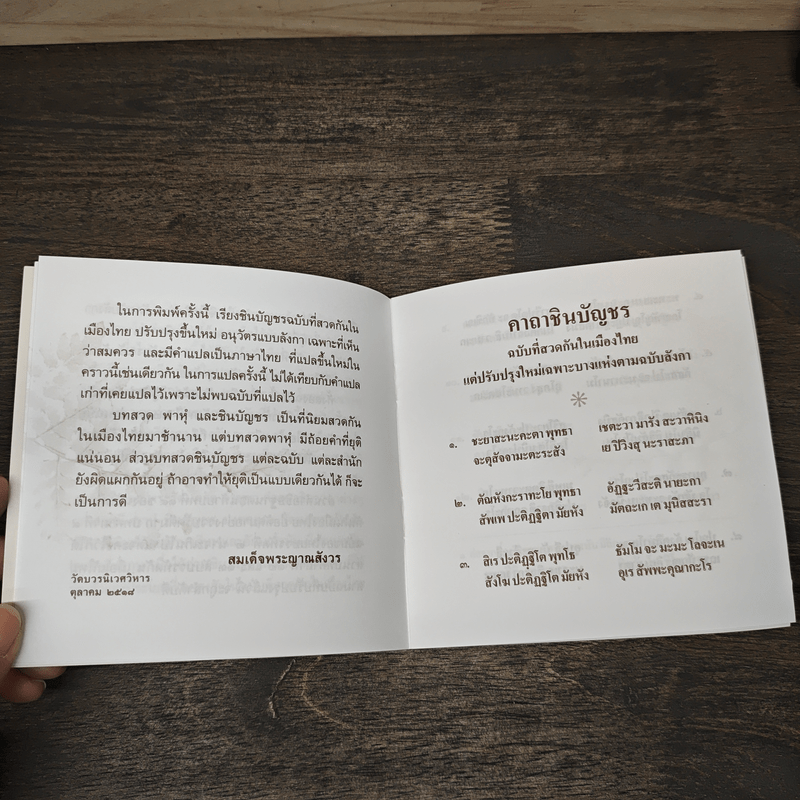 ในการพิมพ์ครั้งนี้ เรียงชินบัญชรฉบับที่สวดกันใน
เมืองไทย ปรับปรุงขึ้นใหม่ อนุวัตรแบบลังกา เฉพาะที่เห็น
ว่าสมควร และมีคำแปลเป็นภาษาไทย ที่แปลขึ้นใหม่ใน
คราวนี้เช่นเดียวกัน ในการแปลครั้งนี้ ไม่ได้เทียบกับคำแปล
เก่าที่เคยแปลไว้เพราะไม่พบฉบับที่แปลไว้
บทสวด พาหุํ และชินบัญชร เป็นที่นิยมสวดกัน
ในเมืองไทยมาช้านาน แต่บทสวดพาหุํ มีถ้อยคำที่ยุติ
แน่นอน ส่วนบทสวดชินบัญชร แต่ละฉบับ แต่ละสำนัก
ยังผิดแผกกันอยู่ ถ้าอาจทำให้ยุติเป็นแบบเดียวกันได้ ก็จะ
เป็นการดี
สมเด็จพระญาณสังวร
วัดบวรนิเวศวิหาร
ตุลาคม ๒๕๑๘
คาถาชินบัญชร
ฉบับที่สวดกันในเมืองไทย
แต่ปรับปรุงใหม่เฉพาะบางแห่งตามฉบับลังกา
๑. ชะยาสะนะคะตา พุทธา เชตะวา มารัง สะวาหินิง
จะตุสัจจามะตะระสัง เย ปิวิงสุ นะราสะภา
๒. ตัณหังกะราทะโย พุทธา อัฏฐะวีสะติ นายะกา
สัพเพ ปะติฏฐิตา มัยหัง มัตถะเก เต มุนิสสะรา
๓. สิเร ปะติฏฐิโต พุทโธ ธัมโม จะ มะมะ โลจะเน
สังโฆ ปะติฏฐิโต มัยหัง อุเร สัพพะคุณากะโร